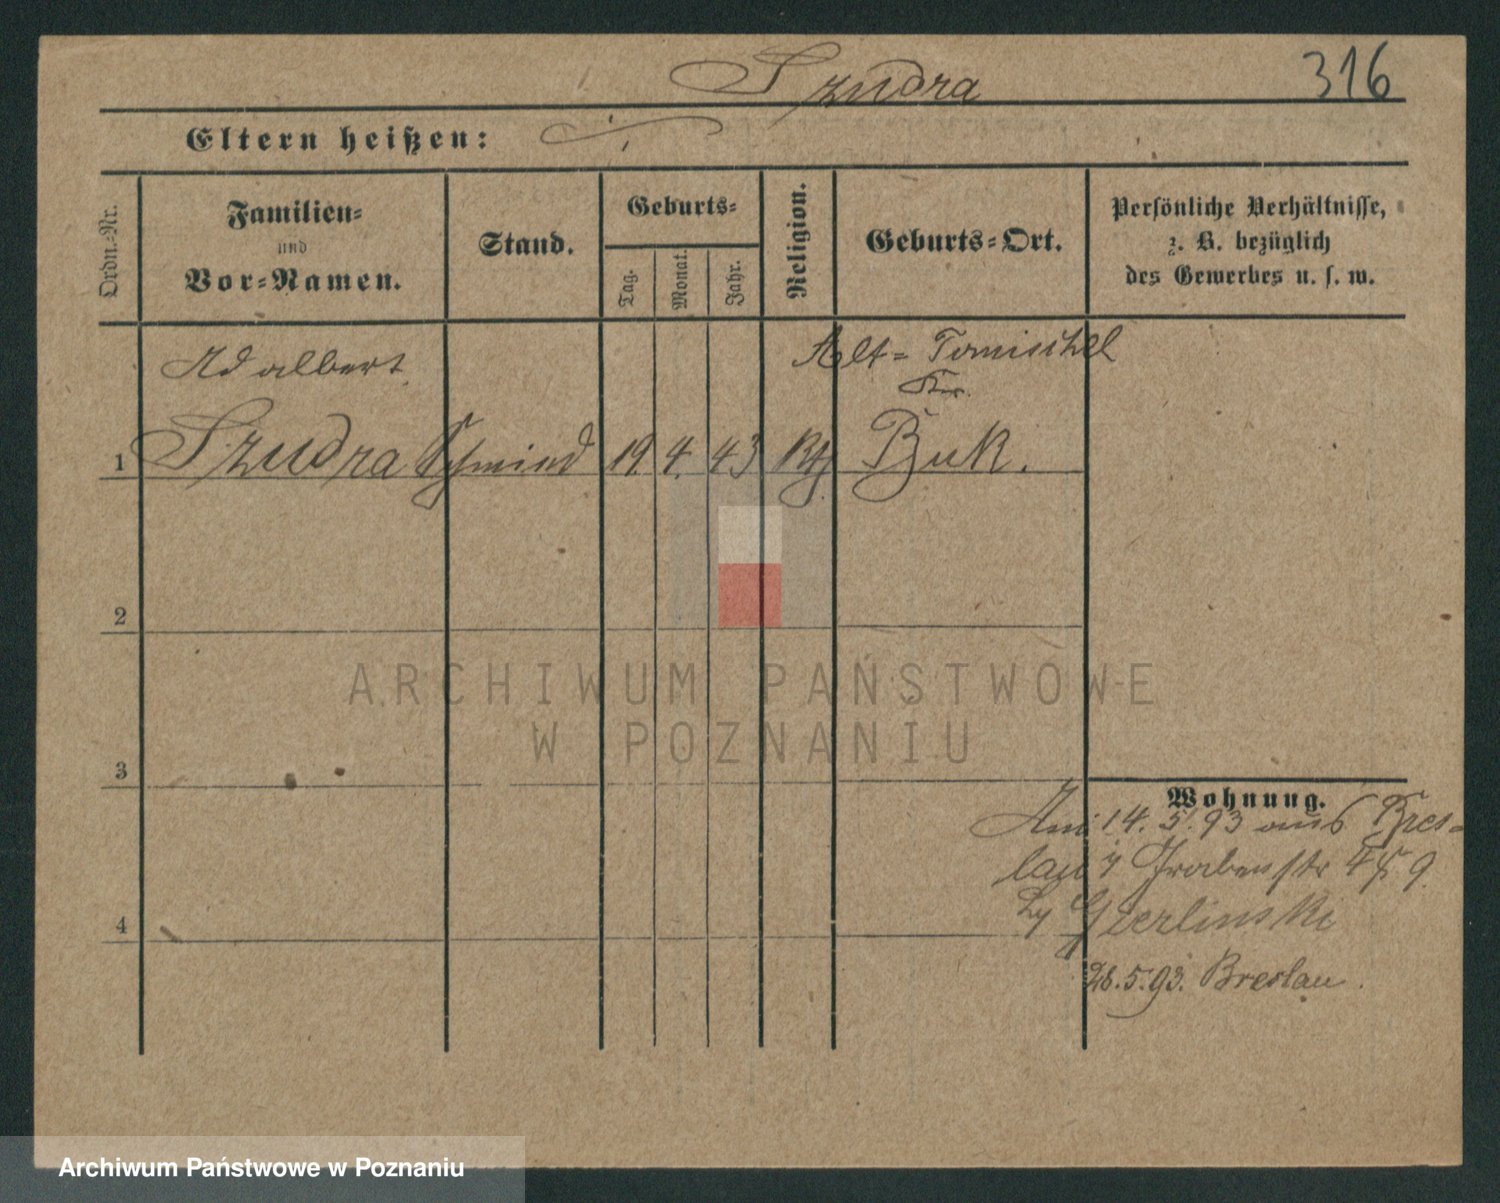 Szudra
316
Eltern heißen:
Ordn.-Nr.
Familien-
und
Vor-Namen.
Stand.
Geburts-
Tag.
Monat.
Jahr.
Religion.
Geburts-Ort.
Persönliche Verhältnisse,
z. B. bezüglich
des Gewerbes u. s. w.
Adalbert
Alt-Tomischel
Kr.
1 Szudra Schmied 19. 4. 43 Kth Buk.
2
ARCHIWUM PAŃSTWOWE
W POZNANIU
3
Wohnung.
Am 14.5.93 aus Bres-
lau Grabenstr
4
Gierlinski
28.5.93. Breslau.
Archiwum Państwowe w Poznaniu